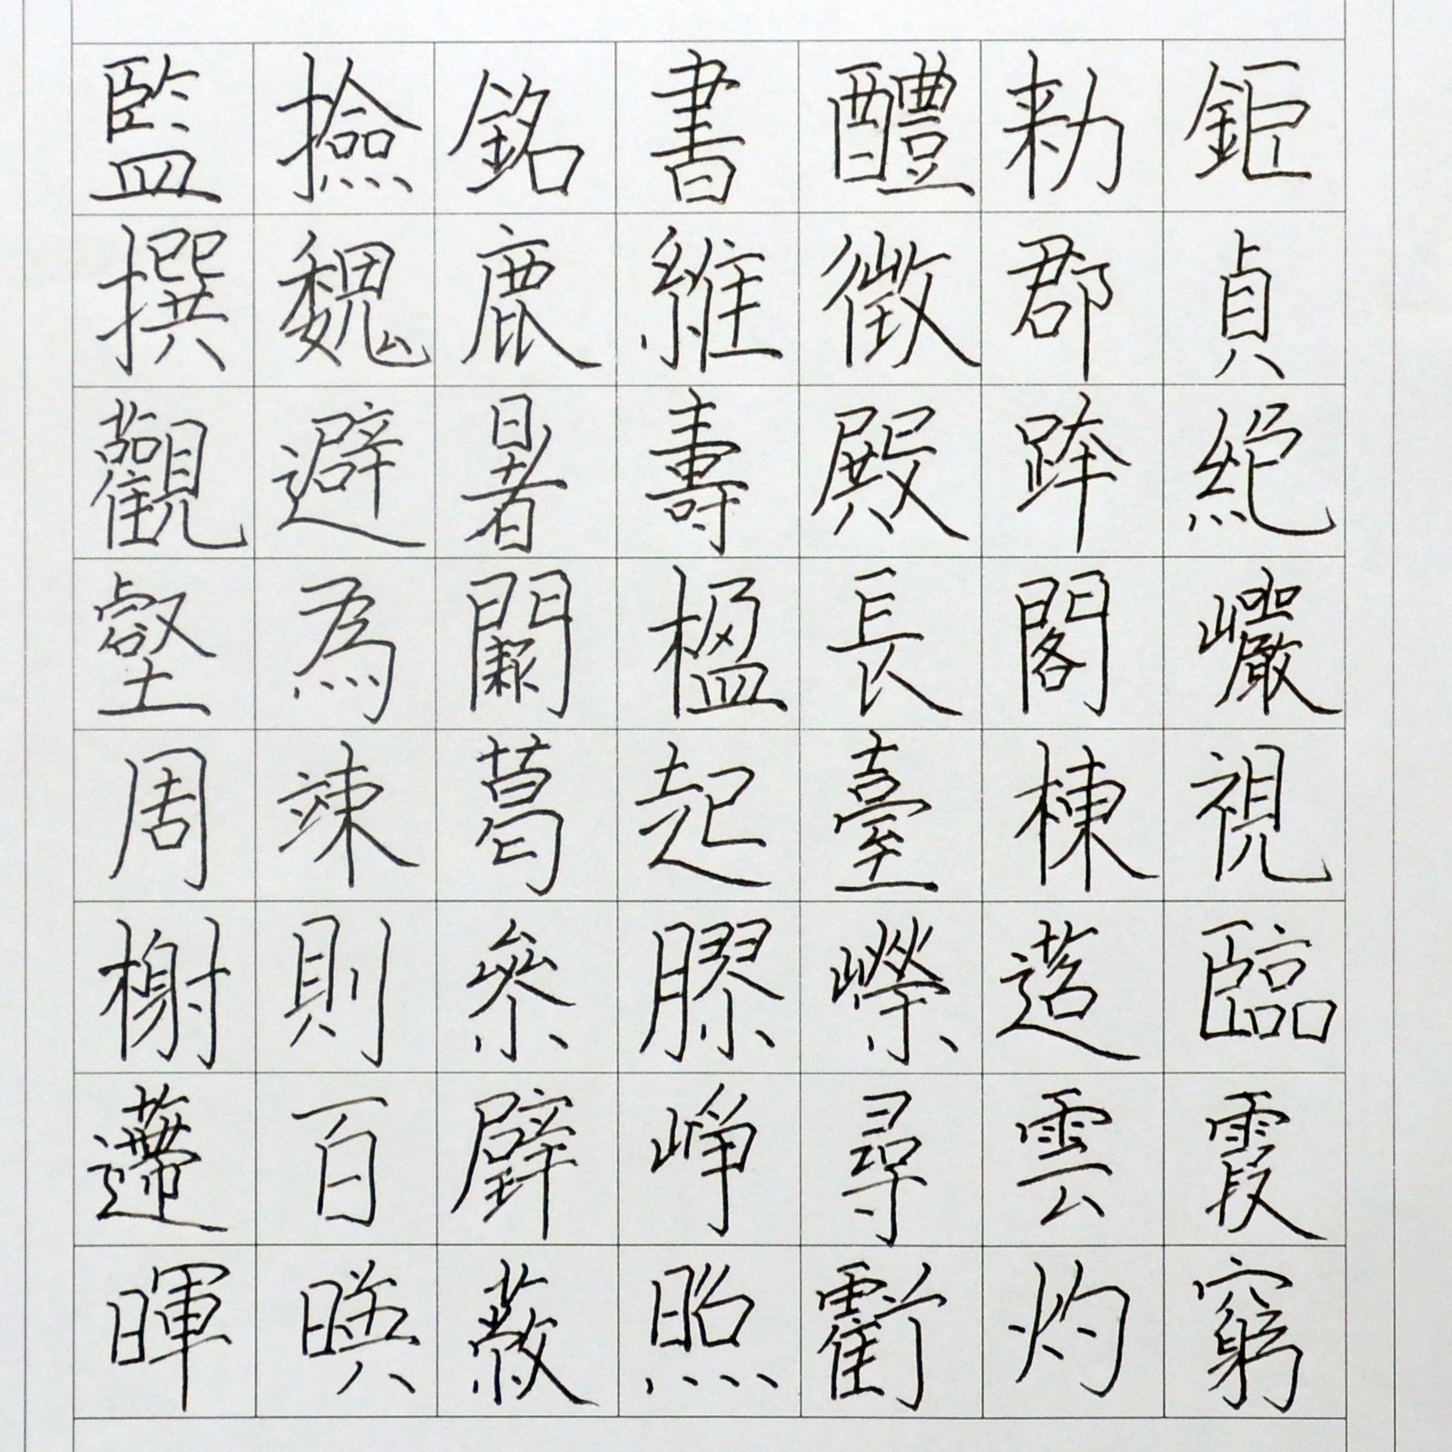 鉅貞絕巖視臨霞窮
勅郡跨閣棟迢雲灼
醴徵殿長臺嶸尋虧
書維壽楹起膠崢照
銘鹿暑闕葛參璧蔽
撿魏避為竦則百暎
監撰觀壑周榭遰暉